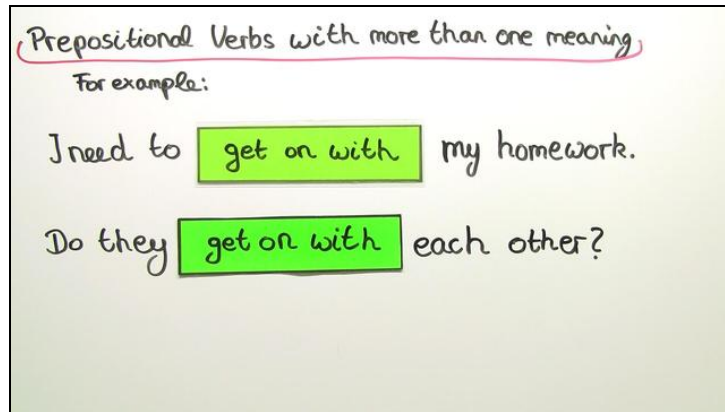 Prepositional Verbs with more than one meaning
For example:
I need to get on with my homework.
Do they get on with each other?